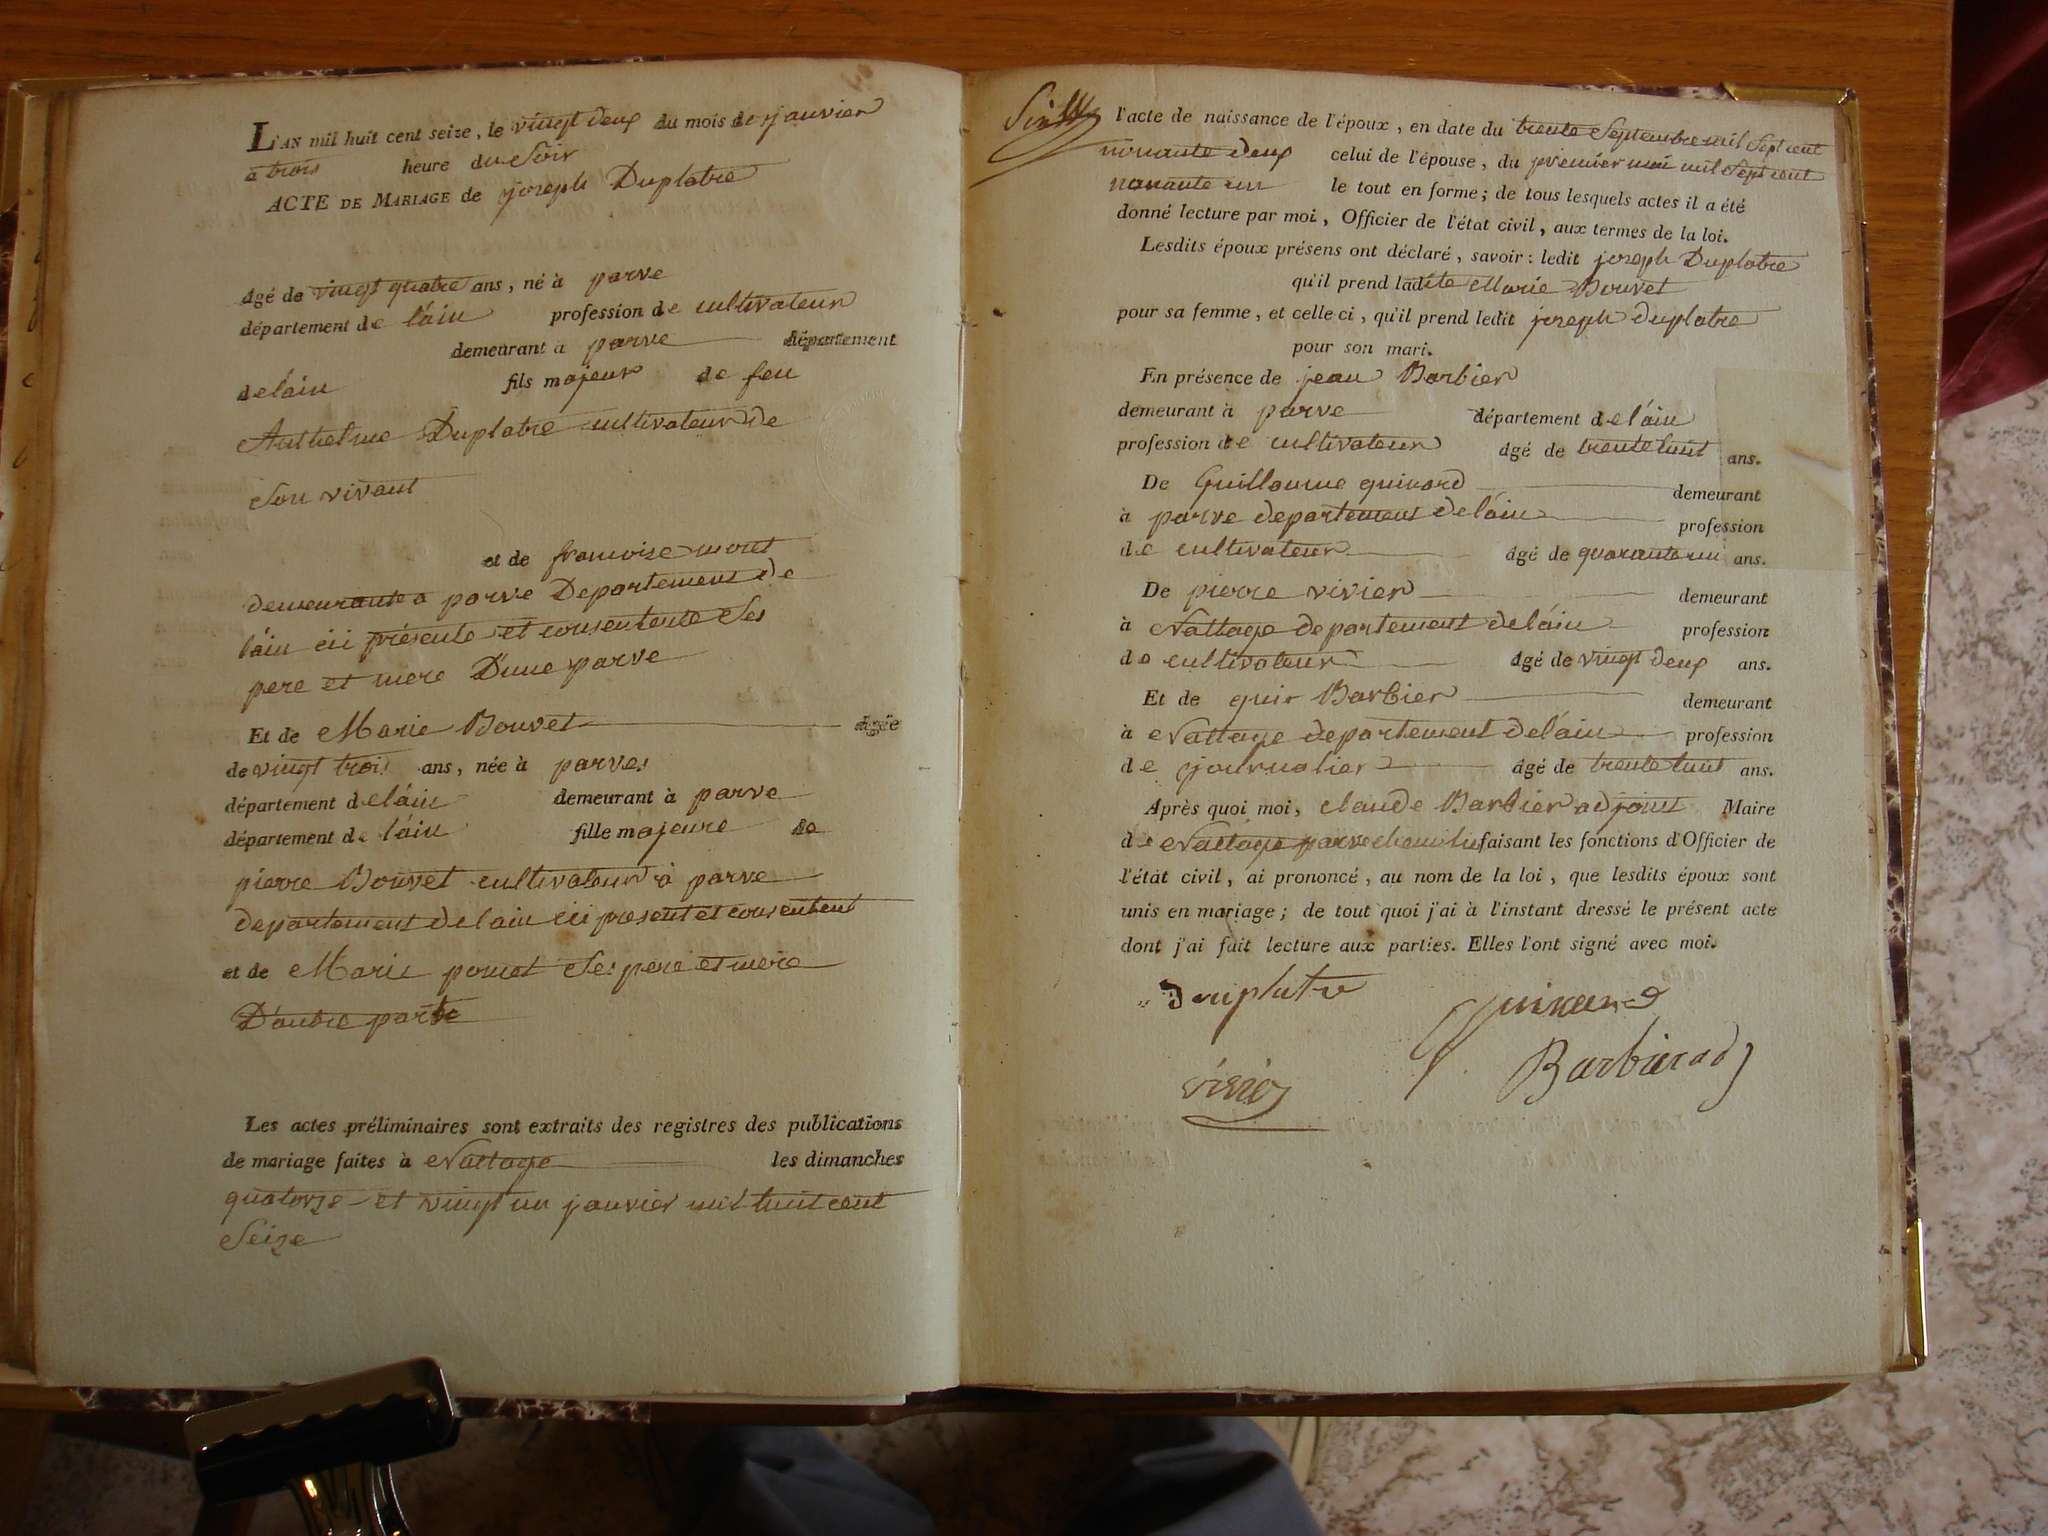 L'AN mil huit cent seize, le vingt deux du mois de janvier
a trois heure du Soir
ACTE DE MARIAGE de joseph Duplatre
âgé de vingt quatre ans, né à parve
département de láin profession de cultivateur
demeurant à parve département
deláin fils majeur de feu
Anthelme Duplatre cultivateur de
Son vivant
et de francoise moret
demeurante a parve Departement de
láin ici présente et consentente Ses
pere et mere D'une parve
Et de Marie Bouvet âgée
de vingt trois ans, née à parves
département deláin demeurant à parve
département de láin fille majeure de
pierre Bouvet cultivateur à parve
departement delain ici present et consentent
et de Marie Ses pere et mere
D'autre parte
Les actes préliminaires sont extraits des registres des publications
de mariage faites à Nattage les dimanches
quatorze et vingt un janvier mil huit cent
Seize
l'acte de naissance de l'époux, en date du trente Septembre mil Sept cent
nonante deux celui de l'épouse, du premier mai mil Sept cent
nonante un le tout en forme; de tous lesquels actes il a été
donné lecture par moi, Officier de l'état civil, aux termes de la loi.
Lesdits époux présens ont déclaré, savoir: ledit joseph Duplatre
qu'il prend ladite Marie Bouvet
pour sa femme, et celle ci, qu'il prend ledit joseph duplatre
pour son mari.
En présence de jean Barbier
demeurant à parve département deláin
profession de cultivateur âgé de trente huit ans.
De Guillaume guinard demeurant
à parve departement deláin profession
de cultivateur âgé de quarante un ans.
De pierre vivier demeurant
à Nattage departement deláin profession
de cultivateur âgé de vingt deux ans.
Et de Barbier demeurant
à Nattage departement deláin profession
de journalier âgé de trente huit ans.
Après quoi moi, claude Barbier adjoint Maire
de Nattage parve faisant les fonctions d'Officier de
l'état civil, ai prononcé, au nom de la loi, que lesdits époux sont
unis en mariage; de tout quoi j'ai à l'instant dressé le présent acte
dont j'ai fait lecture aux parties. Elles l'ont signé avec moi.
duplatre Guinard
vivier Barbier adj